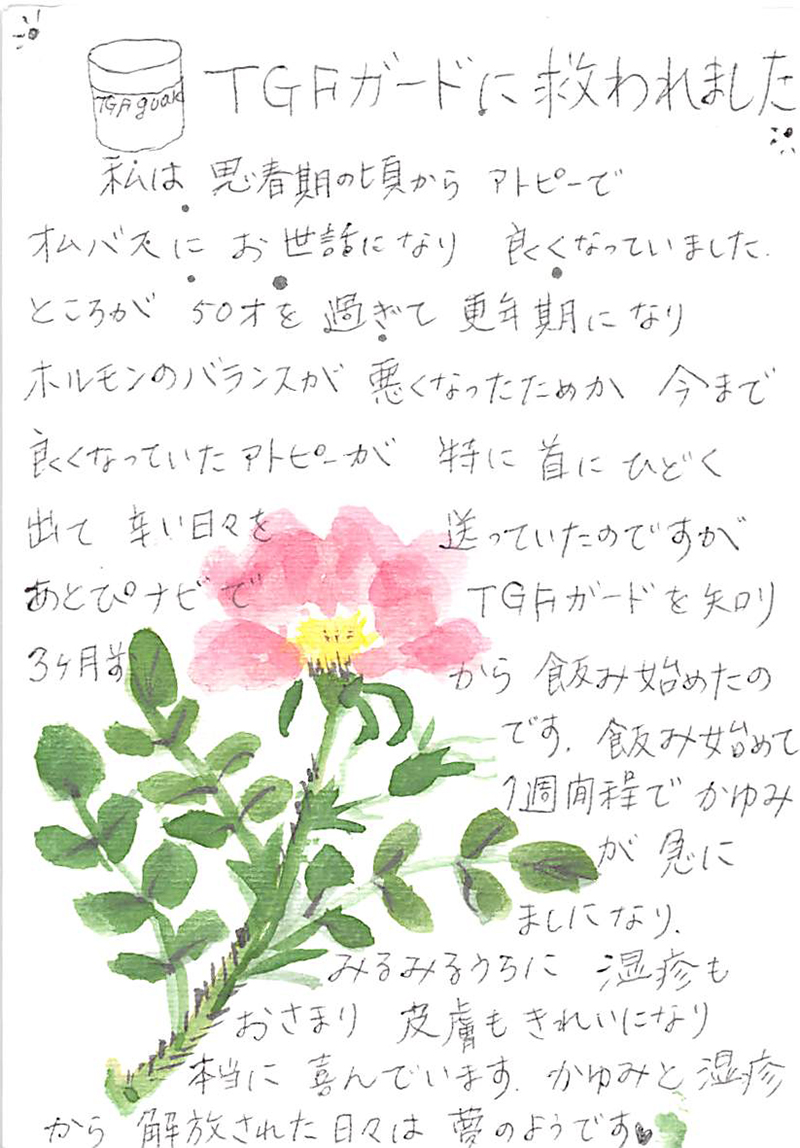 TGAガードに救われました
TGA guak
私は 思春期の頃から アトピーで
オムバスに お世話になり 良くなっていました.
ところが 50才を 過ぎて 更年期になり
ホルモンのバランスが 悪くなったためか 今まで
良くなっていたアトピーが 特に 首に ひどく
出て 辛い日々を 送っていたのですが
あとぴナビで TGAガードを知り
3ヶ月前から 飲み始めたの
です. 飲み始めて
1週間程で かゆみ
が 急に
ましになり.
みるみるうちに 湿疹も
おさまり 皮膚もきれいになり
本当に 喜んでいます. かゆみと湿疹
から 解放された日々は 夢のようです